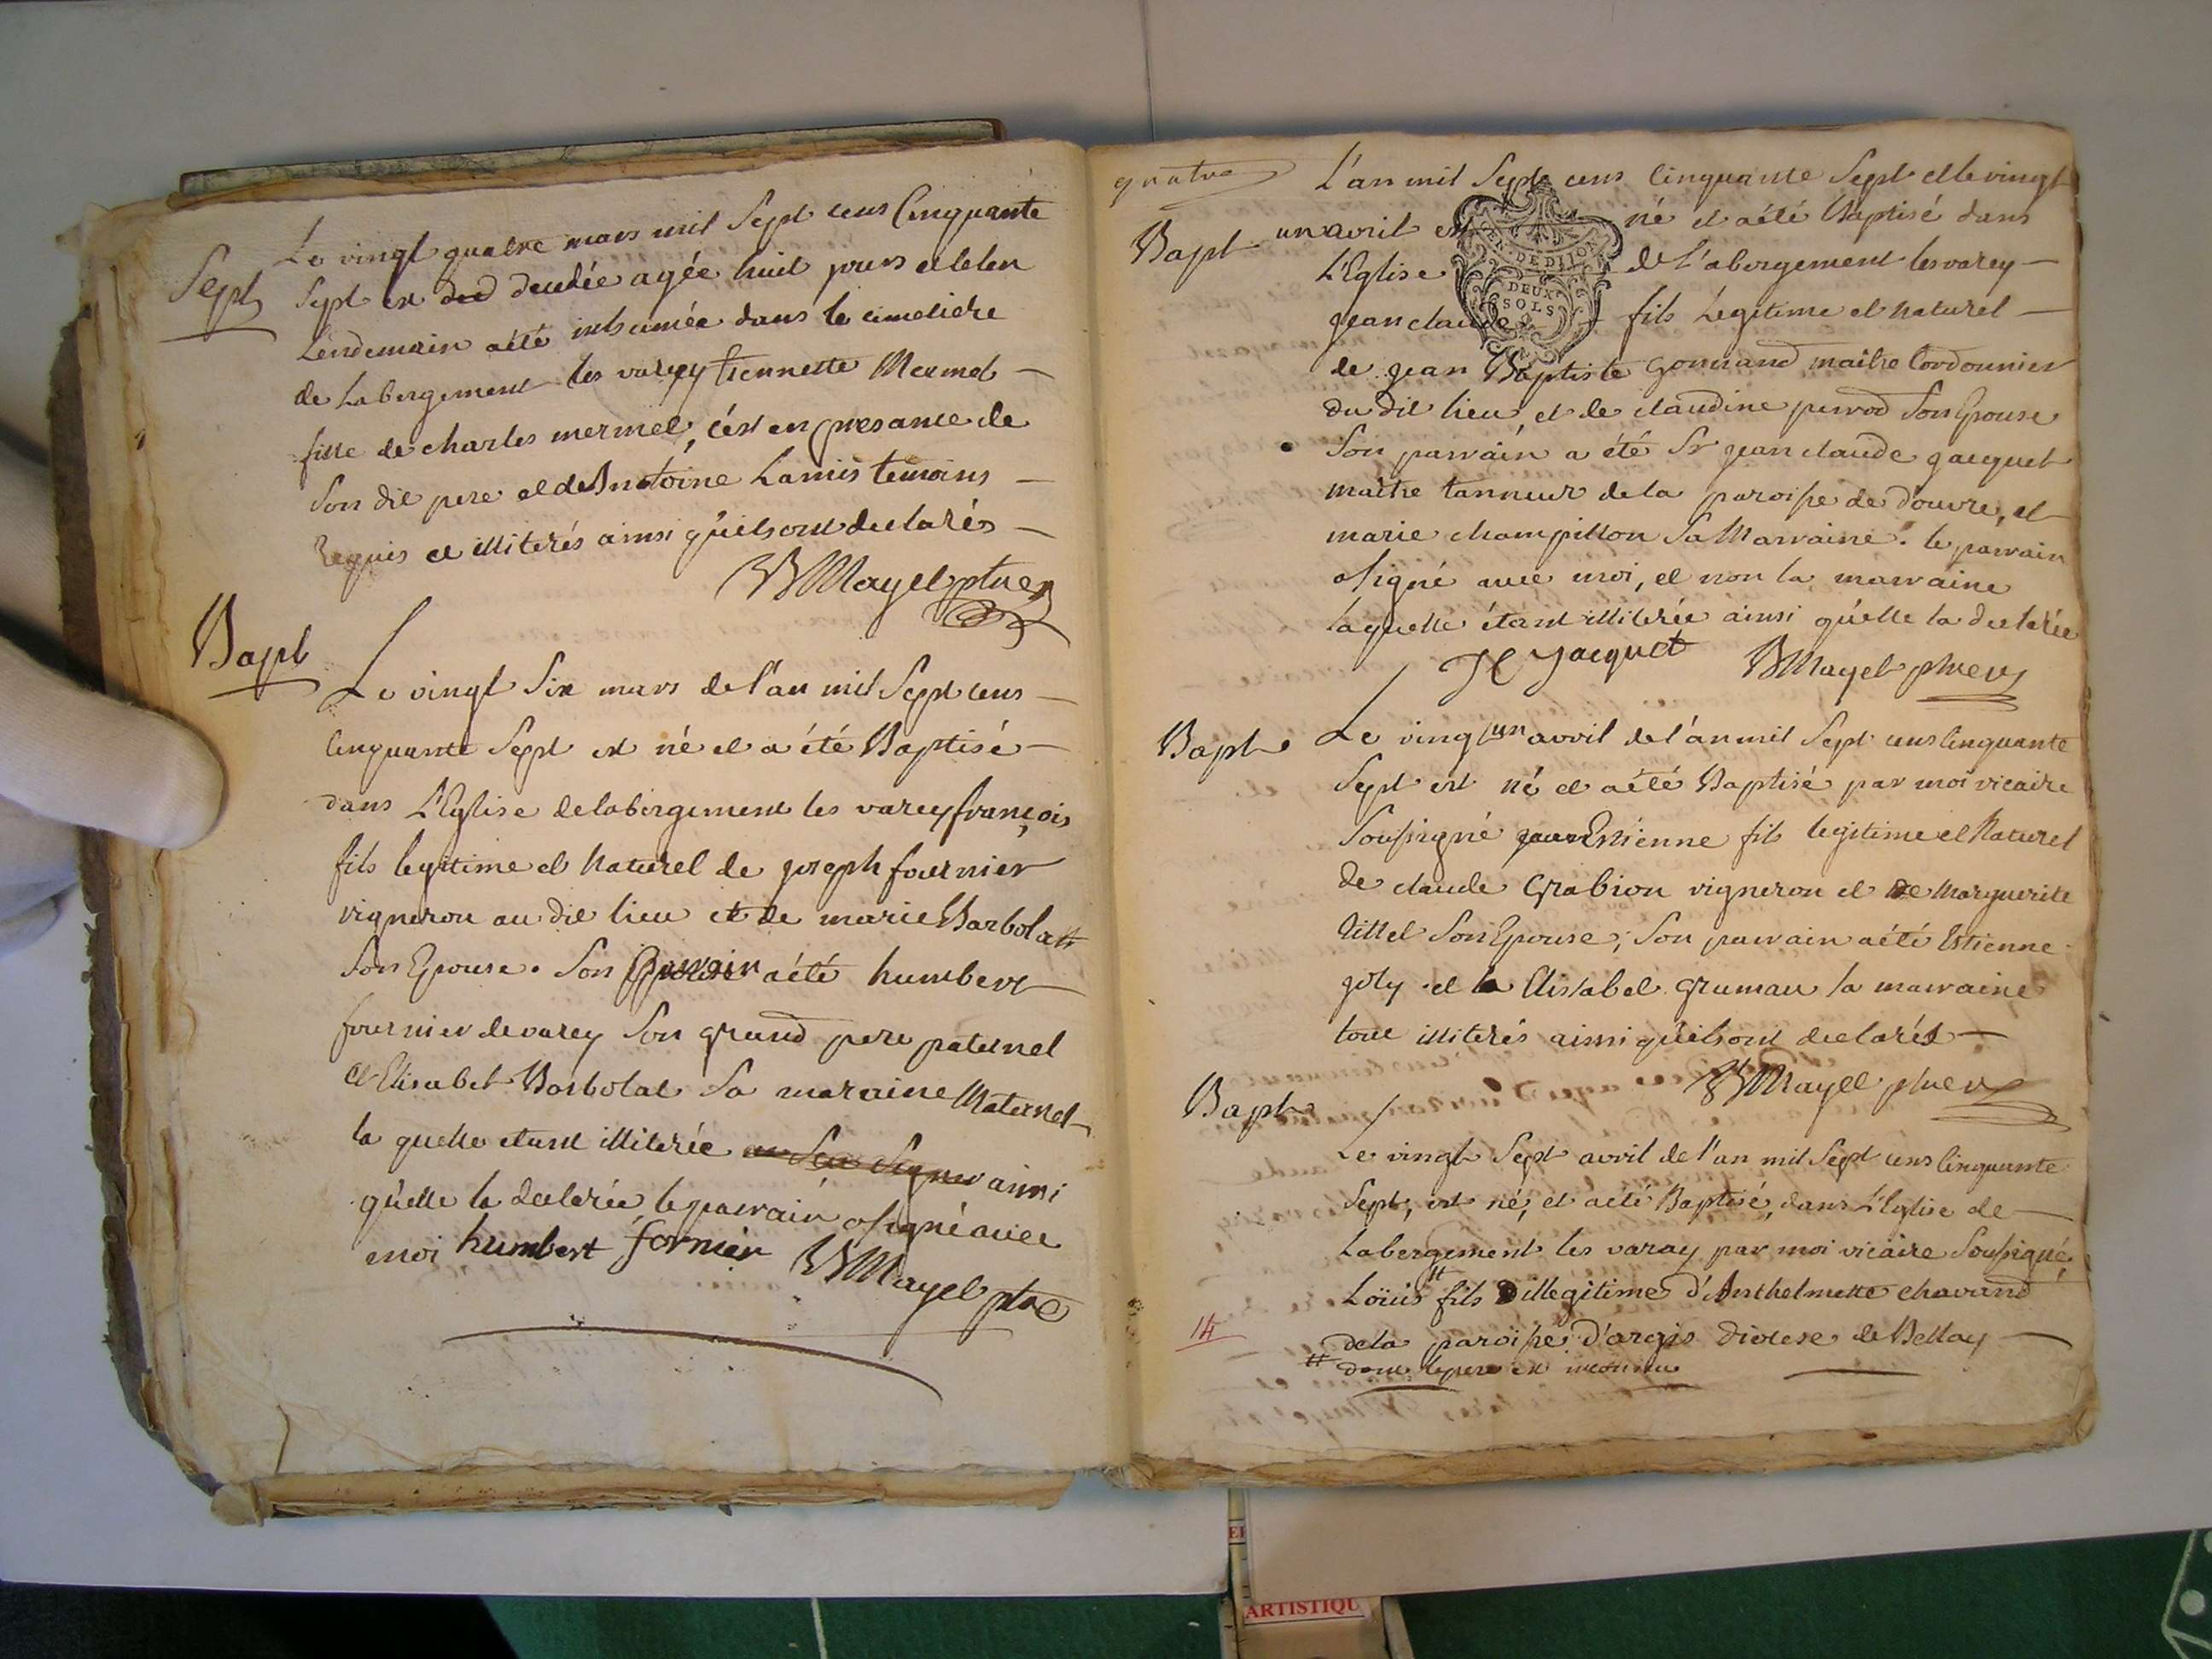 Sept
Le vingt quatre mars mil Sept cens Cinquante
Sept est decedée agée huit jours et le len
Lendemain a été inhumée dans le cimetiere
de Labergement les varey Etiennette Mermet
fille de charles mermet, c'est en presance de
Son dit pere et de Antoine Lamis temoins
Requis et illiterés ainsi qu'ils ont declarés
Mayet ptre
Bapt
Le vingt Six mars de l'an mil Sept cens
Cinquante Sept est né et a été Baptisé
dans L'Eglise de labergement les varey françois
fils legitime et Naturel de joseph fournier
vigneron au dit lieu et de marie Barbolat
Son Epouse. Son parrain a été humbert
fournier de varey Son grand pere paternel
et Elisabet Barbolat Sa maraine Maternel
la quelle etant illiterée ainsi
qu'elle la declerée le parrain a signé avec
moi humbert fornier Mayet ptre
quatre
Bapt
L'an mil Sept cens Cinquante Sept et le vingt
un avril est né et a été Baptisé dans
L'Eglise de L'abergement les varey
jean claude fils Legitime et Naturel
GEN. DE DIJON
DEUX
SOLS
de jean Baptiste Gonnand maitre Cordonnier
du dit lieu et de claudine perrod Son Epouse
Son parrain a été Sr jean claude jacquet
maitre tanneur de la paroisse de douvre, et
marie champillon Sa Marraine. le parrain
a signé avec moi, et non la marraine
laquelle étant illiterée ainsi qu'elle la declerée
JC Jacquet Mayet ptre
Bapt
Le vingt un avril de l'an mil Sept cens Cinquante
Sept est né et a été Baptisé par moi vicaire
Soussigné Estienne fils legitime et Naturel
de claude Grabion vigneron et de Marguerite
tittel Son Epouse; Son parrain a été Estienne
joly et Elisabet Gruman la marraine
tous illiterés ainsi qu'ils ont declarés
Mayet ptre
Bapt
Le vingt Sept avril de l'an mil Sept cens Cinquante
Sept, est né, et a été Baptisé, dans L'Eglise de
Labergement les varay par moi vicaire Soussigné,
Loüis # fils illegitime d'Anthelmette chavand
de la paroisse d'argis diocese de Bellay
# dont le pere est inconnu
14
ARTISTIQU